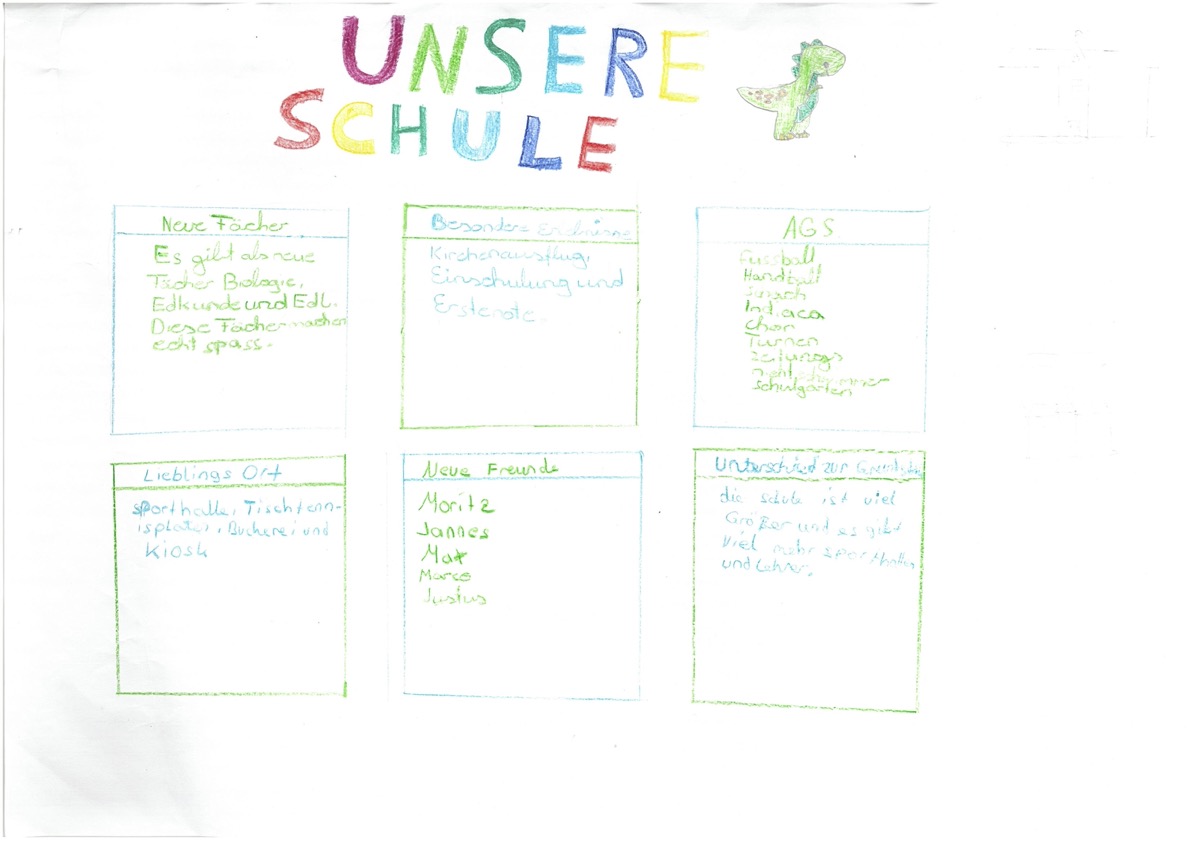 UNSERE
SCHULE
Neue Fächer
Es gibt als neue
Fächer Biologie,
Edkunde und Edl.
Diese Fächer machen
echt spass.
Besondere Erlebnisse
Kirchenausflug,
Einschulung und
Erstenote.
AGS
Fussball
Handball
Indiaca
Chor
Turnen
Zeitungs
nichtschwimmer
Schulgarten
Lieblings Ort
sporthalle, Tischtenn-
isplatte, Bücherei und
Kiosk
Neue Freunde
Moritz
Jannes
Max
Marco
Justus
Unterschied zur
die schule ist viel
Größer und es gibt
viel mehr sporthallen
und Lehrer.